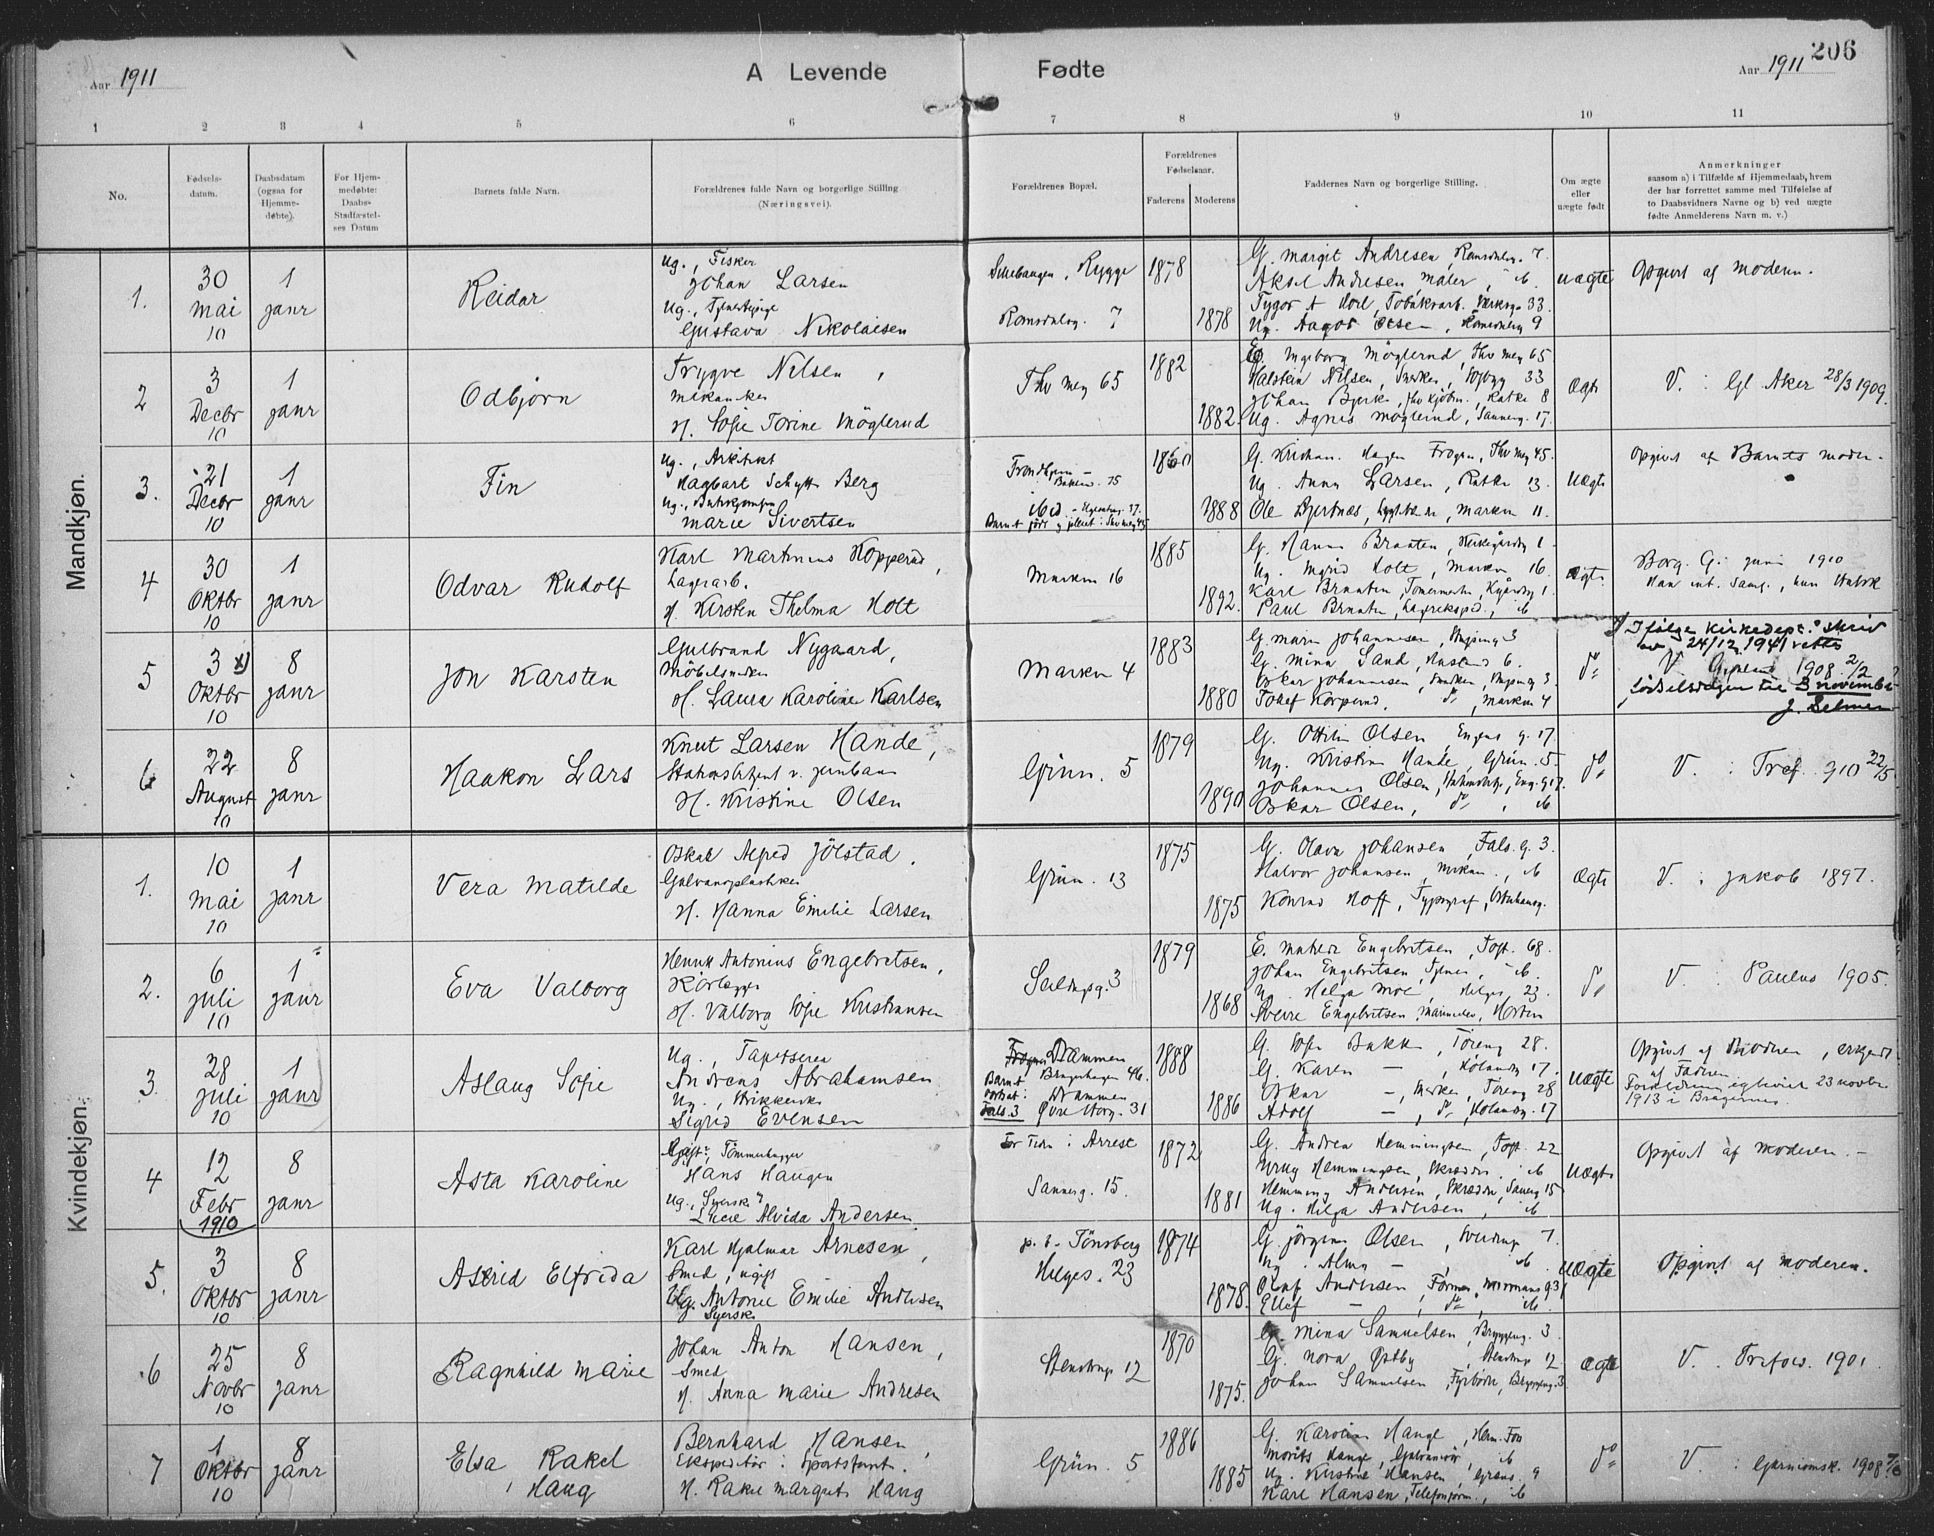 206
Aar 1911
A Levende Fødte
Aar 1911
1 2 3 4 5 6 7 8 9 10 11
No.
Fødsels-
datum.
Daabsdatum
(ogsaa for
Hjemme-
døbte).
For Hjem-
medøbte:
Daabs-
Stadfæstel-
ses Datum
Barnets fulde Navn.
Forældrenes fulde Navn og borgerlige Stilling
(Næringsvei).
Forældrenes Bopæl.
Forældrenes
Fødselsaar.
Faderens Moderens
Faddernes Navn og borgerlige Stilling.
Om ægte
eller
uægte født
Anmerkninger
saasom a) i Tilfælde af Hjemmedaab, hvem
der har forrettet samme med Tilføielse af
to Daabsvidners Navne og b) ved uægte
fødte Anmelderens Navn m. v.)
Mandkjøn.
1.
30
mai
10
1
janr
Reidar
Ug., Fisker
Johan Larsen
Ug., Tjenestepige
Gustava Nikolaisen
Rygge
Romsdalsg. 7
1878
1878
G. Margit Andresen, Romsdalsg. 7
Aksel Andresen, Maler, ib.
Ug. Aagot Olsen, Romsdalsg 9
uægte
Opgivet af moderen.
2
3
Decbr
10
1
janr
Odbjørn
Trygve Nilsen,
mekaniker
H. Sofie Torine Møglerud
Thv mey 65
1882
1882.
G. Ingeborg Møglerud, Thv mey 65
Halstein Nilsen, Snerker, 33
Ug. Agnes Møglerud, Sannerg. 17.
Ægte
V. : Gl Aker 28/3 1909.
3.
21
Decbr
10
1
janr
Fin
Ug., Arkitekt
Hagbart Schytte Berg
Ug.,
Marie Sivertsen
Trondhjem -
Bakken. 15
ibid.
1888
G. Kristian. Hagen Frogen, Thv mey 45.
Ug. Anna Larsen, Ratke 13.
Ole Hjertnæs, Marken 11.
Uægte
Opgivet af Barnets moder.
4
30
Oktbr
10
1
janr
Odvar Rudolf
Karl Martinius Kopperud,
Lagerarb.
H. Kirsten Thelma Holt
Marken 16
1885
1892.
G. Hanna Braaten, Kirkegårdsg 1.
Ug. Ingrid Holt, Marken 16.
Karl Braaten, Tømermester, Kgårdsg 1.
Paul Braaten, Lagerekspd., ib
Ægte.
Borg. G: juni 1910
5
3 x)
Oktbr
10
8
janr
Jon Karsten
Gulbrand Nygaard,
Møbelsnedker
H. Laura Karoline Karlsen
Marken 4
1883
1880
G. Marie Johannesen, 3
G. Mina Sand, 6.
Oskar Johannesen, Snedker, 3
Josef Korperud, do, Marken 4
do
x) Ifølge Kirkedept.s skriv
av 24/12 1941 rettes
V. 1908 2/2
fødselsdagen til 3 november
J. Selmer
6
22
August
10
8
janr
Haakon Lars
Knut Larsen Hande,
Stationsbetjent v. jernbanen
H. Kristine Olsen
Grün. 5
1879
1890
G. Ottilie Olsen, Engens g. 17.
Ug. Kristine Hande, Grün. 5.
Johannes Olsen, Eng. g 17.
Oskar Olsen, do, ib
do
V. : Tref. 910 22/5
Kvindekjøn.
1.
10
mai
10
1
janr
Vera Matilde
Oskar Alfred Jölstad.
Galvanoplastiker
H. Hanna Emilie Larsen
Grün. 13
1875
1875
G. Olava Johansen, Fals. g. 3.
Halvor Johansen, mekan., ib
Konrad Hoff, Typograf,
Ægte
V. : Jakob 1897.
2.
6
juli
10
1
janr
Eva Valborg
Henrik Antonius Engebretsen,
Rörlægger
H. Valborg Sofie Kristiansen
Seildugsg. 3
1879
1868
E. Mathilde Engebretsen, Toft. 68.
Johan Engebretsen, Tjener, ib.
Ug. Helga Moe, Helges 23.
Sverre Engebretsen, Horten
do
V. : Paulus 1905.
3.
28
juli
10
1
janr
Aslaug Sofie
Ug., Tapetserer
Andreas Abrahamsen
Ug., Strikkerske
Sigrid Evensen
Drammen
Bragerhagen 46.
Barnet
Drammen
Fals. 3 Øvre Storg. 31
1888
1886
G. Sofie Bakke, Töreng 28.
G. Karen —, Hölandsg 17.
Oskar —, Snedker, Töreng 28
Adolf —, do, Hölandsg. 17
Uægte
Opgivet af Moderen, erkjendt
af Faderen.
Forældrene egteviet 23 novbr
1913 i Bragernes.
4
12
Febr
1910
8
janr
Asta Karoline
Gift, Tømmerhugger
Hans Haugen
Ug., Syerske
Lucie Alvida Andersen
For Tiden i Arrest
Sannerg. 15.
1872
1881
G. Andrea Hemmingsen, Toft. 22
Hemmingsen, Skrædder, ib
Hemming Andersen, Skrædder, Sannerg 15
Ug. Helga Andersen, ib
Uægte
Opgivet af moderen. -
5.
3
Oktbr
10
8
janr
Astrid Elfrida
Karl Hjalmar Arnesen,
Smed, ugift
Ug. Antonie Emilie Andersen
Syerske
p. t. Tönsberg
Helges. 23
1874
1878.
G. Jörgine Olsen, Sverdrups 7.
Ug. Alma —, ib.
Olaf Andersen, Former, Normans g 31
Ellef —, do, ib.
Uægte
Opgivet af moderen.
6
25
Novbr
10
8
janr
Ragnhild Marie
Johan Anton Hansen,
Smed
H. Anna Marie Andresen
Stenstrup 12
1870
1875.
G. Mina Samuelsen, Bryggerg. 3.
G. Nora Østby, Stenstrup 12
Johan Samuelsen, Fyrbøder, Bryggerg. 3
Ægte
V. : Trefols. 1901.
7
1
Oktbr
10
8
janr
Elsa Rakel
Haug
Bernhard Hansen,
Ekspeditör i Sportsforret.
H. Rakel Margrete Haug
Grün. 5
1886
1885
G. Karoline Hauge, Herm. Foss
Morits Hauge, Galvanisör, ib
Ug. Kirstine Hansen, Grens. 9
Karl Hansen, Telefonform., ib
do
V. : Garnisonsk. 1908